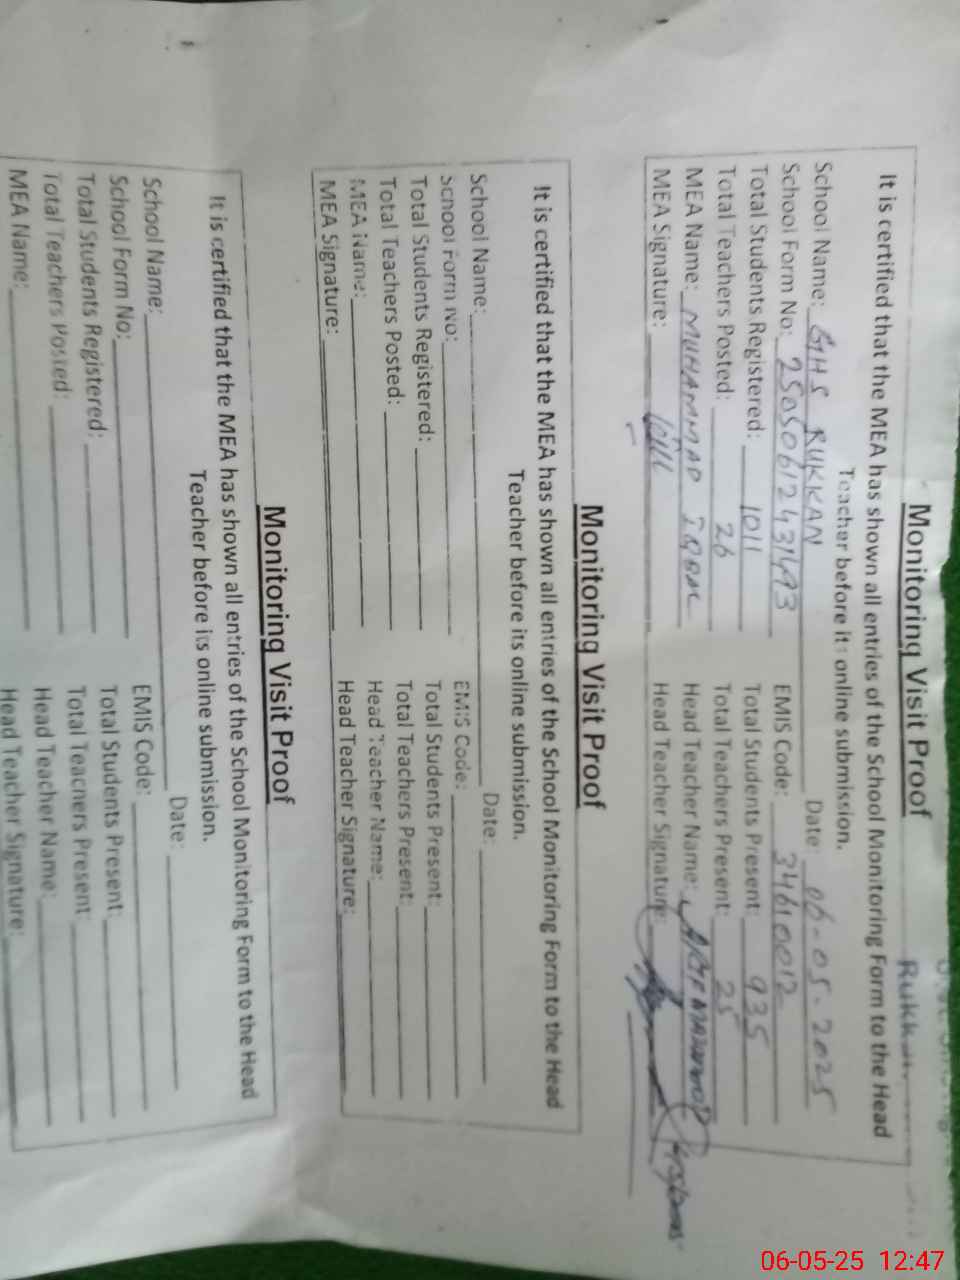 Rukkan
Monitoring Visit Proof
It is certified that the MEA has shown all entries of the School Monitoring Form to the Head
Teacher before its online submission.
School Name: GHS RUKKAN Date: 06-05-2025
School Form No: EMIS Code: 34610012
Total Students Registered: 1011 Total Students Present: 935
Total Teachers Posted: 26 Total Teachers Present: 25
MEA Name: MUHAMMAD IQBAL Head Teacher Name: MAHMOOD
MEA Signature: Head Teacher Signature:
Monitoring Visit Proof
It is certified that the MEA has shown all entries of the School Monitoring Form to the Head
Teacher before its online submission.
School Name: Date:
School Form No: EMIS Code:
Total Students Registered: Total Students Present:
Total Teachers Posted: Total Teachers Present:
MEA Name: Head Teacher Name:
MEA Signature: Head Teacher Signature:
Monitoring Visit Proof
It is certified that the MEA has shown all entries of the School Monitoring Form to the Head
Teacher before its online submission.
School Name: Date:
School Form No: EMIS Code:
Total Students Registered: Total Students Present:
Total Teachers Posted: Total Teachers Present:
MEA Name: Head Teacher Name:
Head Teacher Signature:
06-05-25 12:47